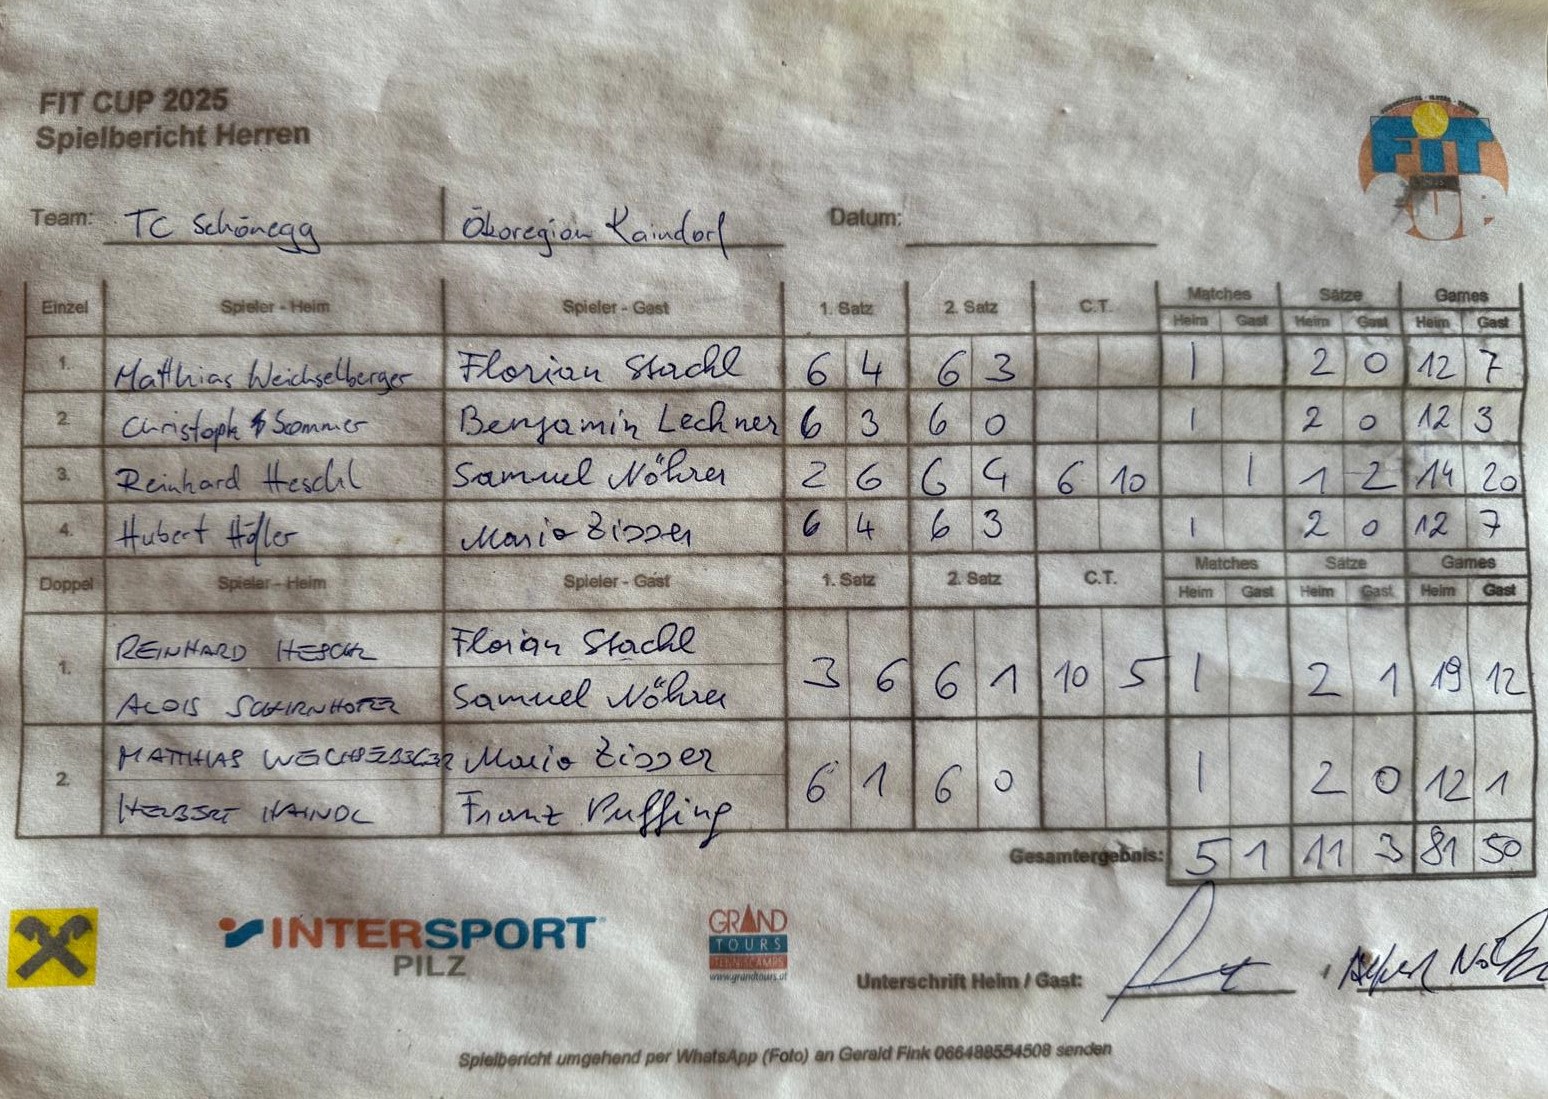 FIT CUP 2025
Spielbericht Herren
FiT
Team: TC Schönegg Ökoregion Kaindorf Datum:
Einzel Spieler - Heim Spieler - Gast 1. Satz 2. Satz C.T. Matches Sätze Games
Heim Gast Heim Gast Heim Gast
1. Matthias Weichselberger Florian Stachl 6 4 6 3 1 2 0 12 7
2. Christoph Sommer Benjamin Lechner 6 3 6 0 1 2 0 12 3
3. Reinhard Heschl Samuel Nöhrer 2 6 6 4 6 10 1 1 2 14 20
4. Hubert Höfler Mario Zisser 6 4 6 3 1 2 0 12 7
Doppel Spieler - Heim Spieler - Gast 1. Satz 2. Satz C.T. Matches Sätze Games
Heim Gast Heim Gast Heim Gast
REINHARD HESCHL Florian Stachl
1. 3 6 6 1 10 5 1 2 1 19 12
ALOIS Samuel Nöhrer
MATTHIAS Mario Zisser
2. 6 1 6 0 1 2 0 12 1
HERBERT HAINDL Franz Puffing
Gesamtergebnis: 5 1 11 3 81 50
INTERSPORT
PILZ
GRAND
TOURS
TENNISCAMPS
www.grandtours.at
Unterschrift Heim / Gast:
Spielbericht umgehend per WhatsApp (Foto) an Gerald Fink 066488554508 senden